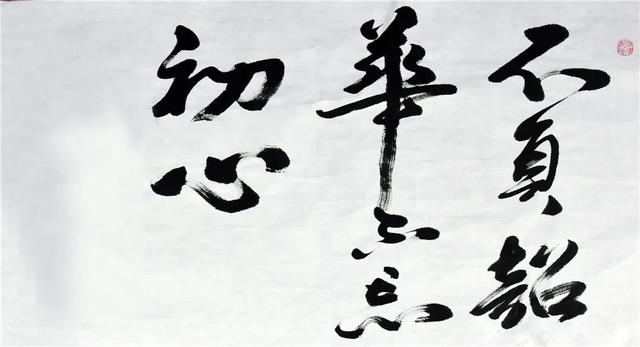 不負韶
華不忘
初心